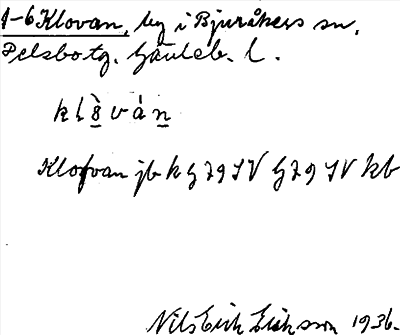 1-6 Klovan, by i Bjuråkers sn.
Delsbo tg. Gävleb. l.
Klovan jb k G 79 SV G 79 SV kb
Nils Erik Eriksson 1936.